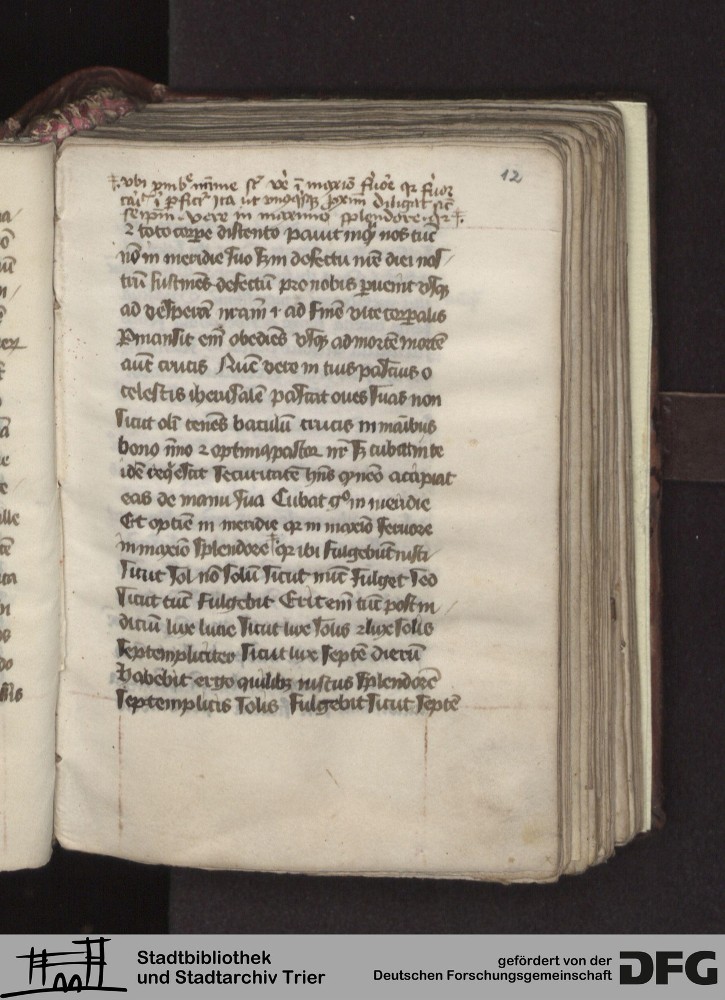 12
in maxio
ita ut diligat sic
seipm. vere in maximo splendore. qr
⁊ toto corpe distento pavit inqͣ nos tūc
nō in meridie suo sꝫ in defectu mē diei nos/
trū sustinēs defectū pro nobis pervenit usqꝫ
ad vesperā nr̄am ⁊ ad finē vite corpalis
Pmansit em̄ obediēs usqꝫ ad mortē mortē
autē crucis Nūc vere in tuis pascuis o
celestis iherusalē pascat oves suas non
sicut oli tenēs baculū crucis in maībus
bono īmo ⁊ optimꝰ pastor nr̄ sꝫ cubat in te
idē reqͥescit securitatē hn̄s qͥ neō accipiat
eas de manu sua Cubat gͦ in meridie
Et optīe in meridie qr in maxīo fervore
in maxīo splendore qr ibi fulgebūt iusti
sicut sol nō solū sicut nūc fulget seō
sicut tūc fulgebit Erit em̄ tūc post in/
diciū lux lune sicut lux solis ⁊ lux solis
septempliciter sicut lux septē dierū
Habebit ergo quilibꝫ iustus splendorē
septemplicis solis fulgebit sicut septē
Stadtbibliothek
und Stadtarchiv Trier
gefördert von der
Deutschen Forschungsgemeinschaft
DFG